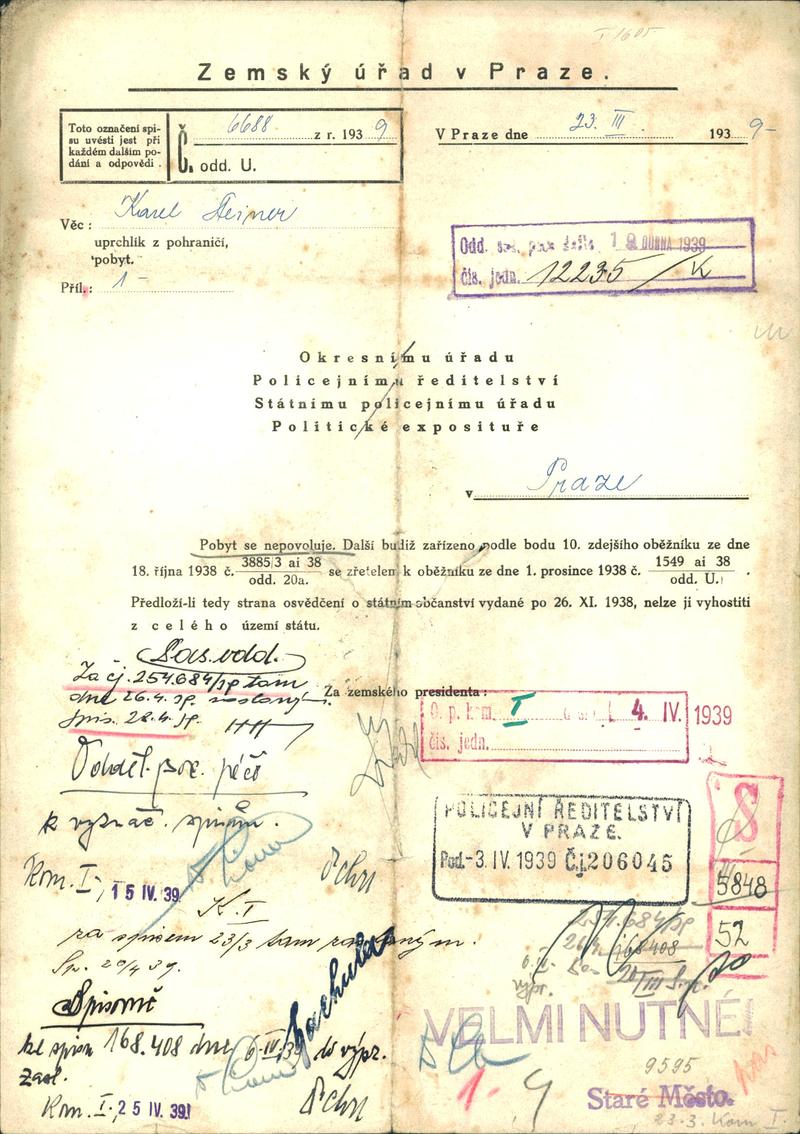 I 1605
Zemský úřad v Praze.
Toto označení spi-
su uvésti jest při
každém dalším po-
dání a odpovědi.
Č. 6688 z r. 1939
odd. U.
V Praze dne 23. III. 1939-
Věc: Karel Steiner
uprchlík z pohraničí,
pobyt.
Příl.: 1-
Odd. 18 DUBNA 1939
čís. jedn. 12235/K
Okresnímu úřadu
Policejnímu ředitelství
Státnímu policejnímu úřadu
Politické exposituře
v Praze
Pobyt se nepovoluje. Další budiž zařízeno podle bodu 10. zdejšího oběžníku ze dne
18. října 1938 č. 3885/3 ai 38 odd. 20a. se zřetelem k oběžníku ze dne 1. prosince 1938 č. 1549 ai 38 odd. U.
Předloží-li tedy strana osvědčení o státním občanství vydané po 26. XI. 1938, nelze ji vyhostiti
z celého území státu.
Za čj. 254.684/sp tam
dne 26.4. sp. zaslaným.
Za zemského presidenta:
O. p. kom. I 4. IV. 1939
čís. jedn.
Odděl. soc. péče
k vyznač. spisům.
POLICEJNÍ ŘEDITELSTVÍ
V PRAZE.
Pod. -3. IV. 1939 Č.j. 206045
S
5848
52
Kom. I. 15 IV. 39
K. I
za spisem 23/3 tam zaslaným.
Sp. 20/4 39.
254.684/sp
168408
výpr.
Spisovně
ke spisu 168.408 dne 6.III.39 do výpr.
zasl.
Kom. I. 25 IV. 39
VELMI NUTNÉ!
1. 9
9595
Staré Město.
23.3. Kom I.